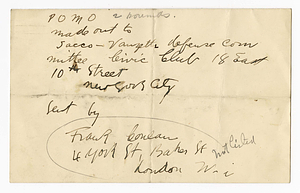 P O M O 2 pounds.
made out to
Sacco-Vanzetti defense Com
mittee Civic Club 18 East
10th Street
New York City
Sent by
Frank
4 York St, Baker St
London W-1
Not Listed